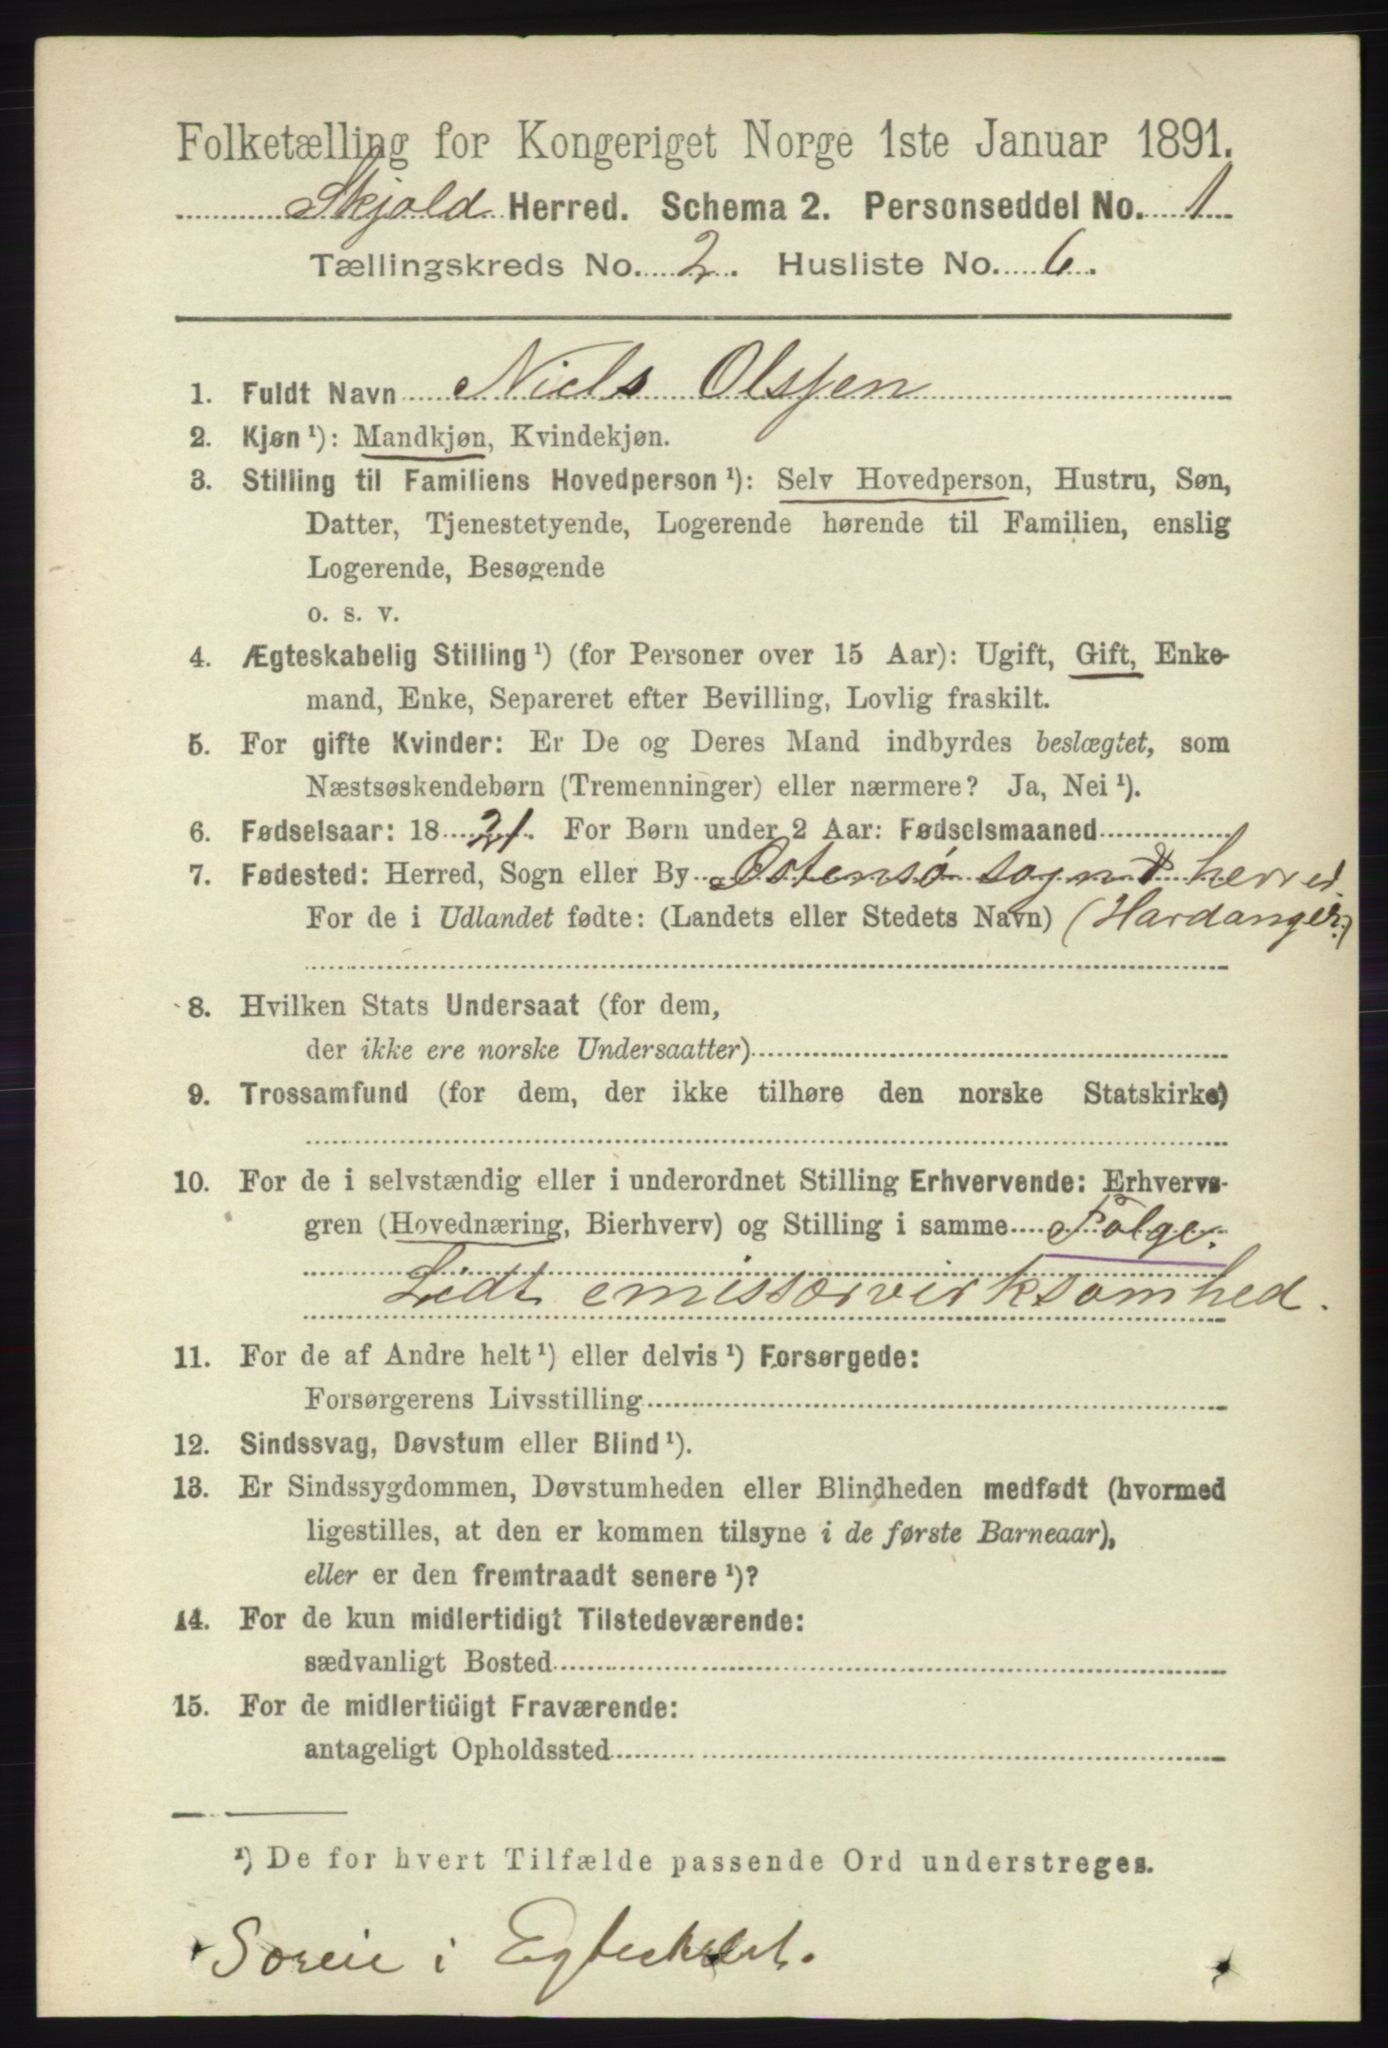 Folketælling for Kongeriget Norge 1ste Januar 1891.
Skjold Herred. Schema 2. Personseddel No. 1
Tællingskreds No. 2. Husliste No. 6.
1. Fuldt Navn Niels Olsen
2. Kjøn ¹): Mandkjøn, Kvindekjøn.
3. Stilling til Familiens Hovedperson ¹): Selv Hovedperson, Hustru, Søn,
Datter, Tjenestetyende, Logerende hørende til Familien, enslig
Logerende, Besøgende
o. s. v.
4. Ægteskabelig Stilling ¹) (for Personer over 15 Aar): Ugift, Gift, Enke-
mand, Enke, Separeret efter Bevilling, Lovlig fraskilt.
5. For gifte Kvinder: Er De og Deres Mand indbyrdes beslægtet, som
Næstsøskendebørn (Tremenninger) eller nærmere? Ja, Nei ¹).
6. Fødselsaar: 18 21. For Børn under 2 Aar: Fødselsmaaned
7. Fødested: Herred, Sogn eller By Ostensø sogn & herred.
For de i Udlandet fødte: (Landets eller Stedets Navn) (Hardanger.)
8. Hvilken Stats Undersaat (for dem,
der ikke ere norske Undersaatter)
9. Trossamfund (for dem, der ikke tilhøre den norske Statskirke)
10. For de i selvstændig eller i underordnet Stilling Erhvervende: Erhvervs-
gren (Hovednæring, Bierhverv) og Stilling i samme Folge.
Lidt emissærvirksomhed.
11. For de af Andre helt ¹) eller delvis ¹) Forsørgede:
Forsørgerens Livsstilling
12. Sindssvag, Døvstum eller Blind ¹).
13. Er Sindssygdommen, Døvstumheden eller Blindheden medfødt (hvormed
ligestilles, at den er kommen tilsyne i de første Barneaar),
eller er den fremtraadt senere ¹)?
14. For de kun midlertidigt Tilstedeværende:
sædvanligt Bosted
15. For de midlertidigt Fraværende:
antageligt Opholdssted
¹) De for hvert Tilfælde passende Ord understreges.
i